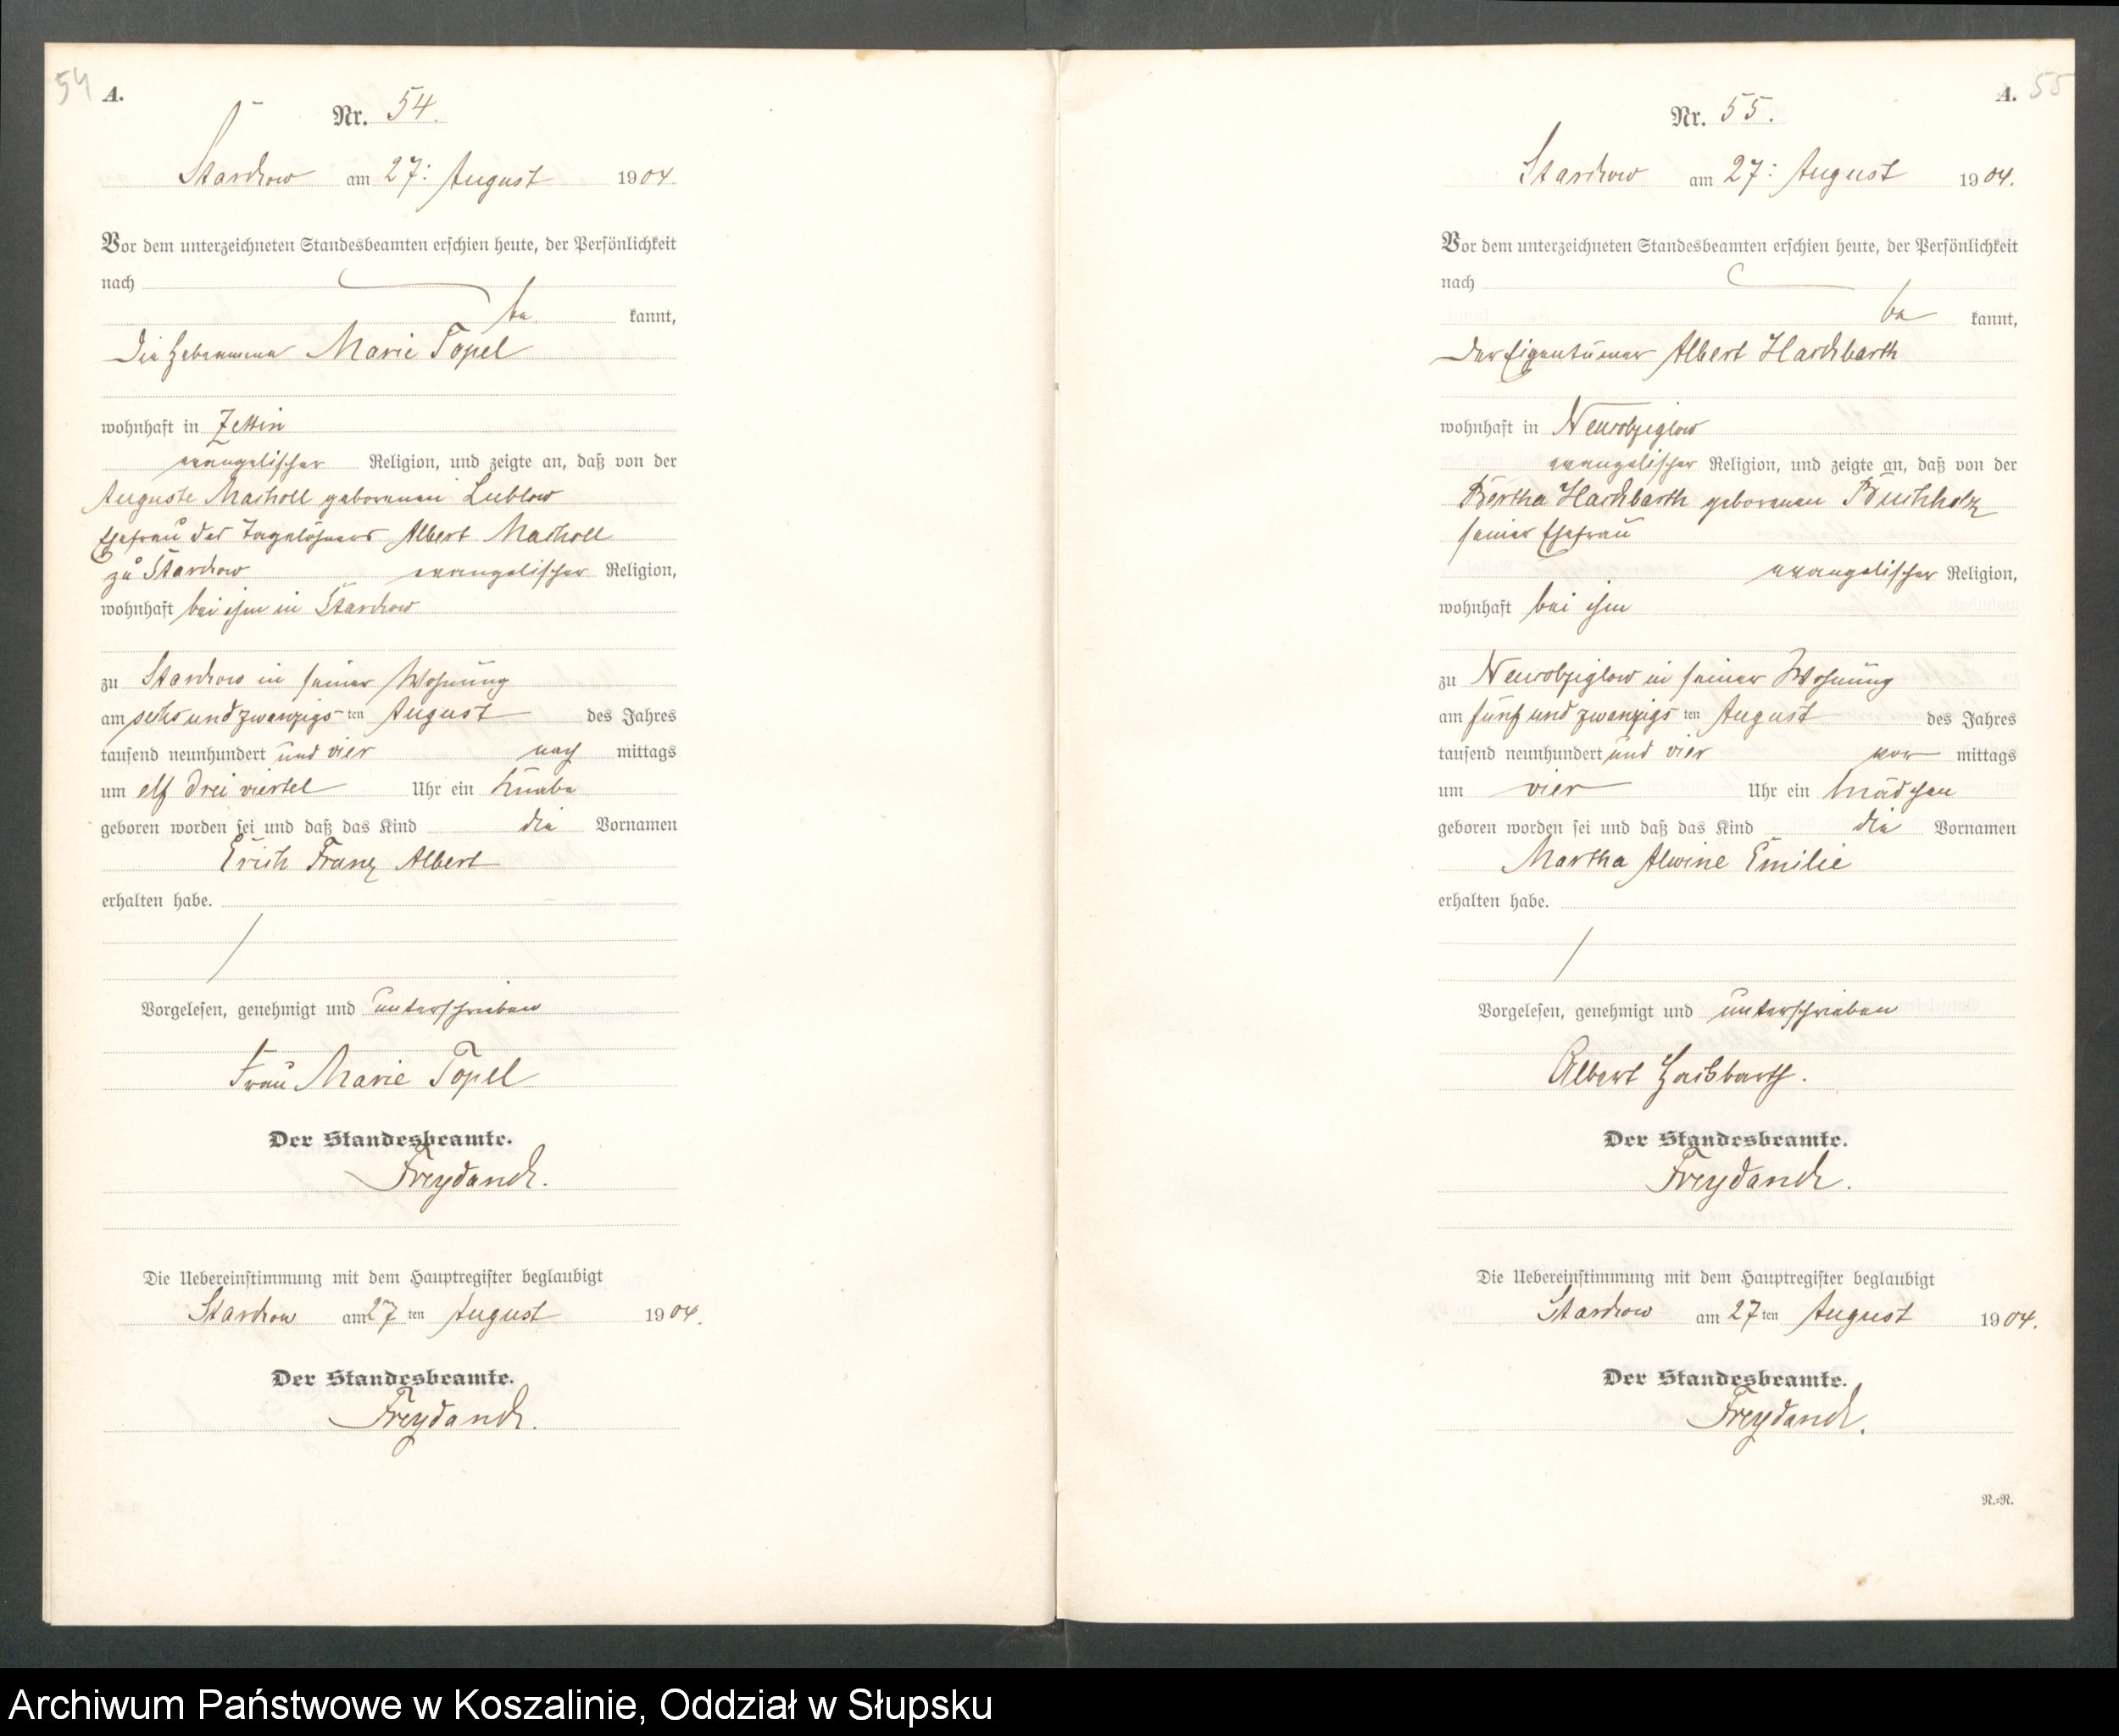 54
A.
Nr. 54.
Starckow am 27: August 1904
Vor dem unterzeichneten Standesbeamten erschien heute, der Persönlichkeit
nach
be kannt,
die Hebeamme Marie Topel
wohnhaft in Zettin
evangelischer Religion, und zeigte an, daß von der
Auguste Macholl geborenen Lublow
Ehefrau des Tagelöhners Albert Macholl
zu Starckow evangelischer Religion,
wohnhaft bei ihm in Starckow
zu Starckow in seiner Wohnung
am sechs und zwanzigs ten August des Jahres
tausend neunhundert und vier nach mittags
um elf drei viertel Uhr ein Knabe
geboren worden sei und daß das Kind die Vornamen
Erich Franz Albert
erhalten habe.
Vorgelesen, genehmigt und unterschrieben
Frau Marie Topel
Der Standesbeamte.
Freydanck.
Die Uebereinstimmung mit dem Hauptregister beglaubigt
Starckow am 27 ten August 1904.
Der Standesbeamte.
Freydanck.
A. 55
Nr. 55.
Starckow am 27: August 1904.
Vor dem unterzeichneten Standesbeamten erschien heute, der Persönlichkeit
nach
be kannt,
der Eigentümer Albert Hackbarth
wohnhaft in Neurobziglow
evangelischer Religion, und zeigte an, daß von der
Bertha Hackbarth geborenen Buchholz
seiner Ehefrau
evangelischer Religion,
wohnhaft bei ihm
zu Neurobziglow in seiner Wohnung
am fünf und zwanzigs ten August des Jahres
tausend neunhundert und vier vor mittags
um vier Uhr ein Mädchen
geboren worden sei und daß das Kind die Vornamen
Martha Alwine Emilie
erhalten habe.
Vorgelesen, genehmigt und unterschrieben
Albert Hackbarth.
Der Standesbeamte.
Freydanck.
Die Uebereinstimmung mit dem Hauptregister beglaubigt
Starckow am 27 ten August 1904.
Der Standesbeamte.
Freydanck.
N.=R.
Archiwum Państwowe w Koszalinie, Oddział w Słupsku